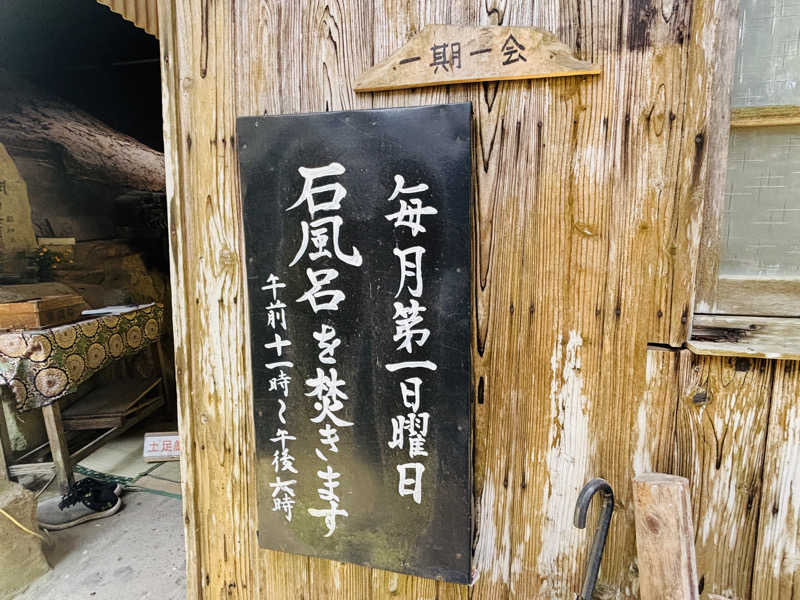 一期一会
毎月第一日曜日
石風呂を焚きます
午前十一時〜午後六時
土足